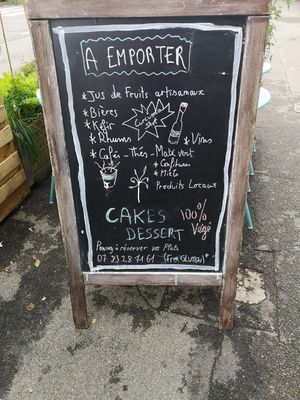 A EMPORTER
*Jus de Fruits artisanaux
*Bières
*Kéfir
*Rhums
*Vins
*Cafés - Thés - Maté vert
*Confitures
*Miels
Produits Locaux
CAKES
DESSERT
100%
Végé
Pensez à réserver vos Plats
07 83 28 71 61 (Free GLUTEN)*